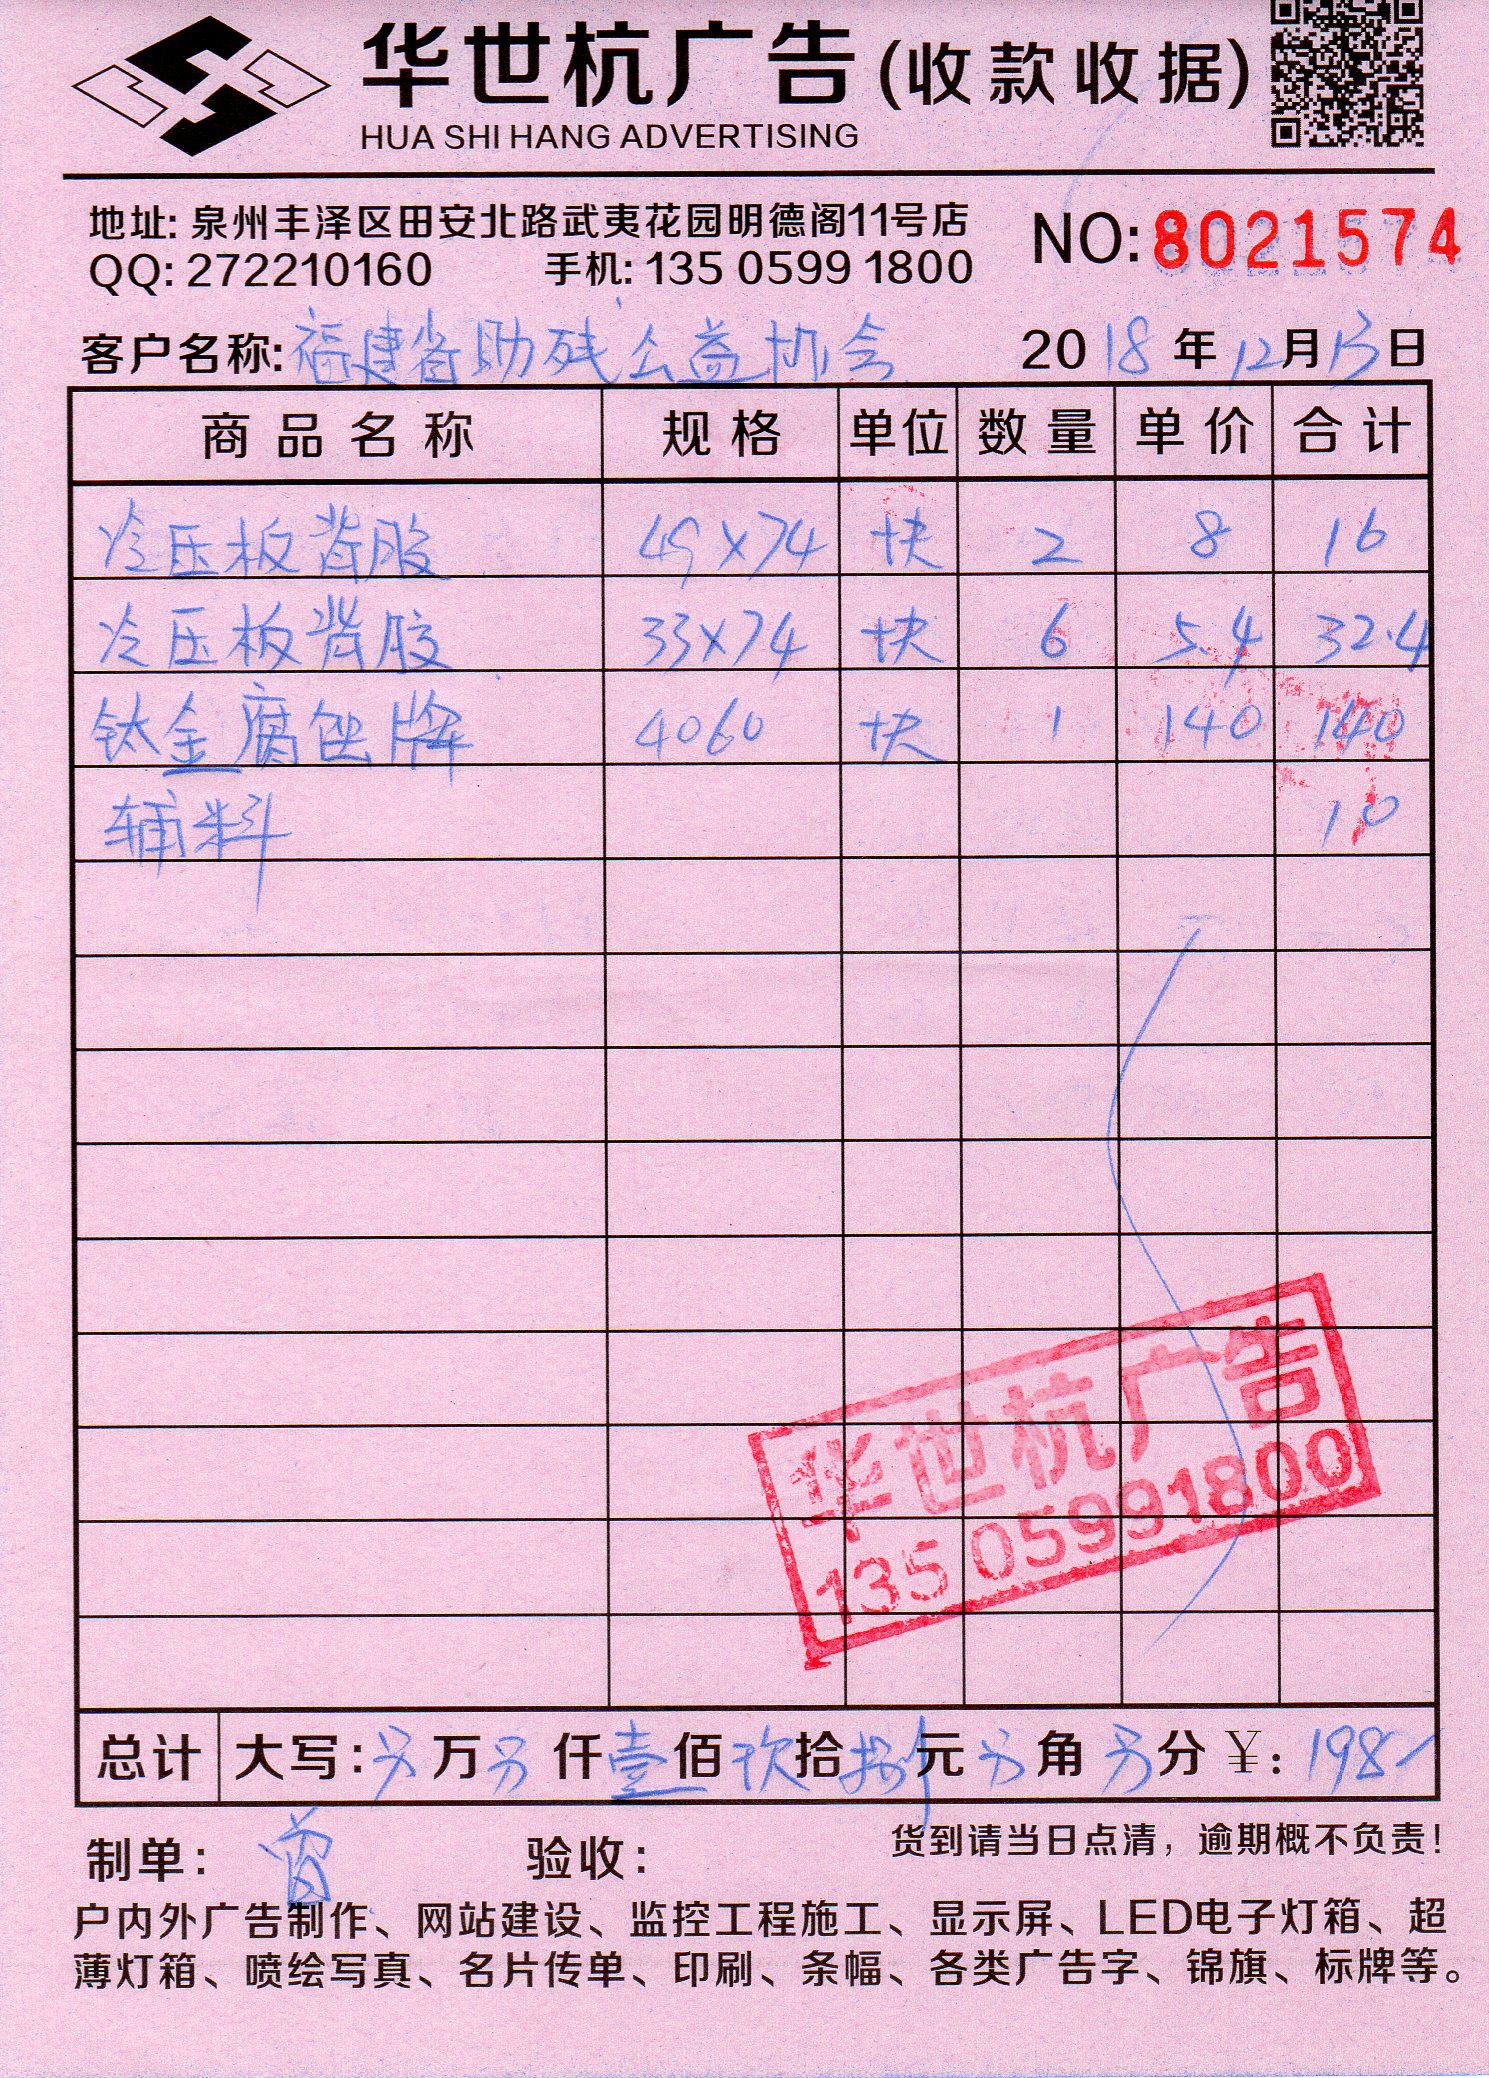 华世杭广告(收款收据)
HUA SHI HANG ADVERTISING
地址: 泉州丰泽区田安北路武夷花园明德阁11号店
QQ: 272210160 手机: 135 0599 1800 NO: 8021574
客户名称: 福建省助残公益协会 2018年12月13日
商品名称 规格 单位 数量 单价 合计
冷压板背胶 49×74 块 2 8 16
冷压板背胶 33×74 块 6 5.4 32.4
钛金腐蚀牌 4060 块 1 140 140
辅料 10
华世杭广告
135 05991800
总计 大写: 另万另仟壹佰玖拾捌元另角另分 ¥: 198
制单: 曾 验收: 货到请当日点清，逾期概不负责!
户内外广告制作、网站建设、监控工程施工、显示屏、LED电子灯箱、超
薄灯箱、喷绘写真、名片传单、印刷、条幅、各类广告字、锦旗、标牌等。